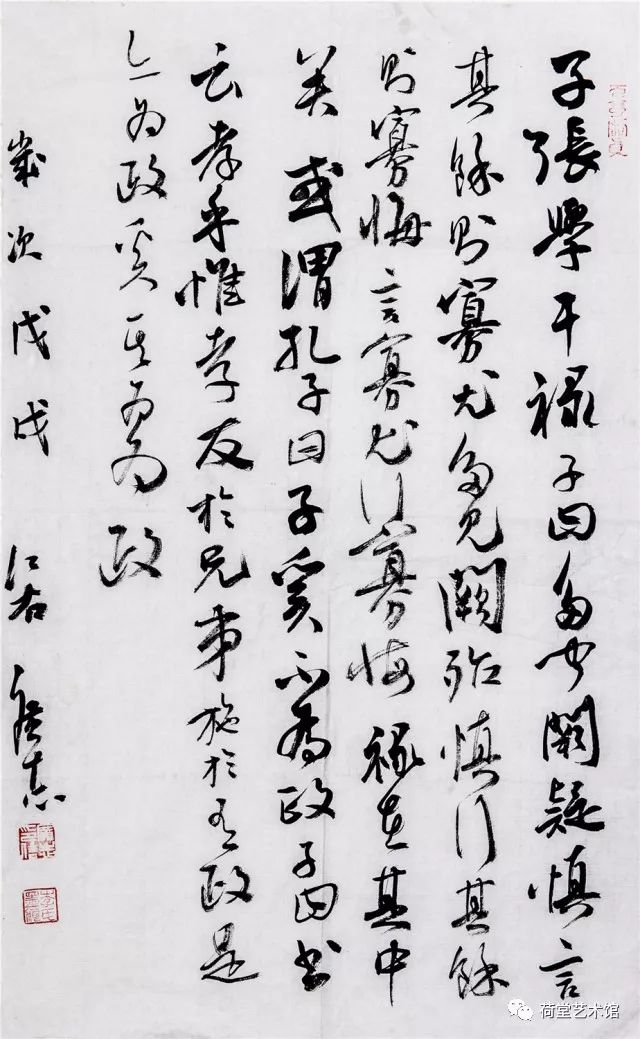 子張學干禄子曰多闻闕疑慎言
其餘则寡尤多见闕殆慎行其餘
则寡悔言寡尤行寡悔禄在其中
矣或謂孔子曰子奚不為政子曰书
云孝乎惟孝友於兄弟施於有政是
亦为政奚其为为政
歲次戊戌 江右
荷堂艺术馆